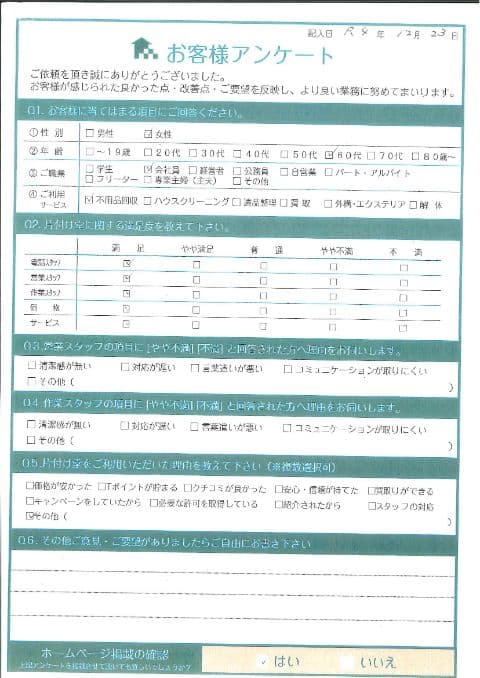 記入日 R8年 12月 23日
お客様アンケート
ご依頼を頂き誠にありがとうございました。
お客様が感じられた良かった点・改善点・ご要望を反映し、より良い業務に努めてまいります。
Q1. お客様に当てはまる項目にご回答ください。
①性別 □男性 ☑女性
②年齢 □〜19歳 □20代 □30代 □40代 □50代 ☑60代 □70代 □80歳〜
③ご職業 □学生 ☑会社員 □経営者 □公務員 □自営業 □パート・アルバイト
□フリーター □専業主婦(主夫) □その他
④ご利用サービス ☑不用品回収 □ハウスクリーニング □遺品整理 □買取 □外構・エクステリア □解体
Q2. 片付け堂に関する満足度を教えて下さい。
満足 やや満足 普通 やや不満 不満
電話スタッフ ☑ □ □ □ □
営業スタッフ ☑ □ □ □ □
作業スタッフ ☑ □ □ □ □
価格 ☑ □ □ □ □
サービス ☑ □ □ □ □
Q3. 営業スタッフの項目に [やや不満] [不満] と回答された方へ理由をお伺いします。
□清潔感が無い □対応が遅い □言葉遣いが悪い □コミュニケーションが取りにくい
□その他( )
Q4. 作業スタッフの項目に [やや不満] [不満] と回答された方へ理由をお伺いします。
□清潔感が無い □対応が遅い □言葉遣いが悪い □コミュニケーションが取りにくい
□その他( )
Q5. 片付け堂をご利用いただいた理由を教えて下さい(※複数選択可)
□価格が安かった □Tポイントが貯まる □クチコミが良かった □安心・信頼が持てた □買取りができる
□キャンペーンをしていたから □必要な許可を取得している □紹介されたから □スタッフの対応
☑その他( )
Q6. その他ご意見・ご要望がありましたらご自由にお書き下さい
ホームページ掲載の確認
上記アンケートを掲載させて頂いても宜しいでしょうか? ☑はい □いいえ